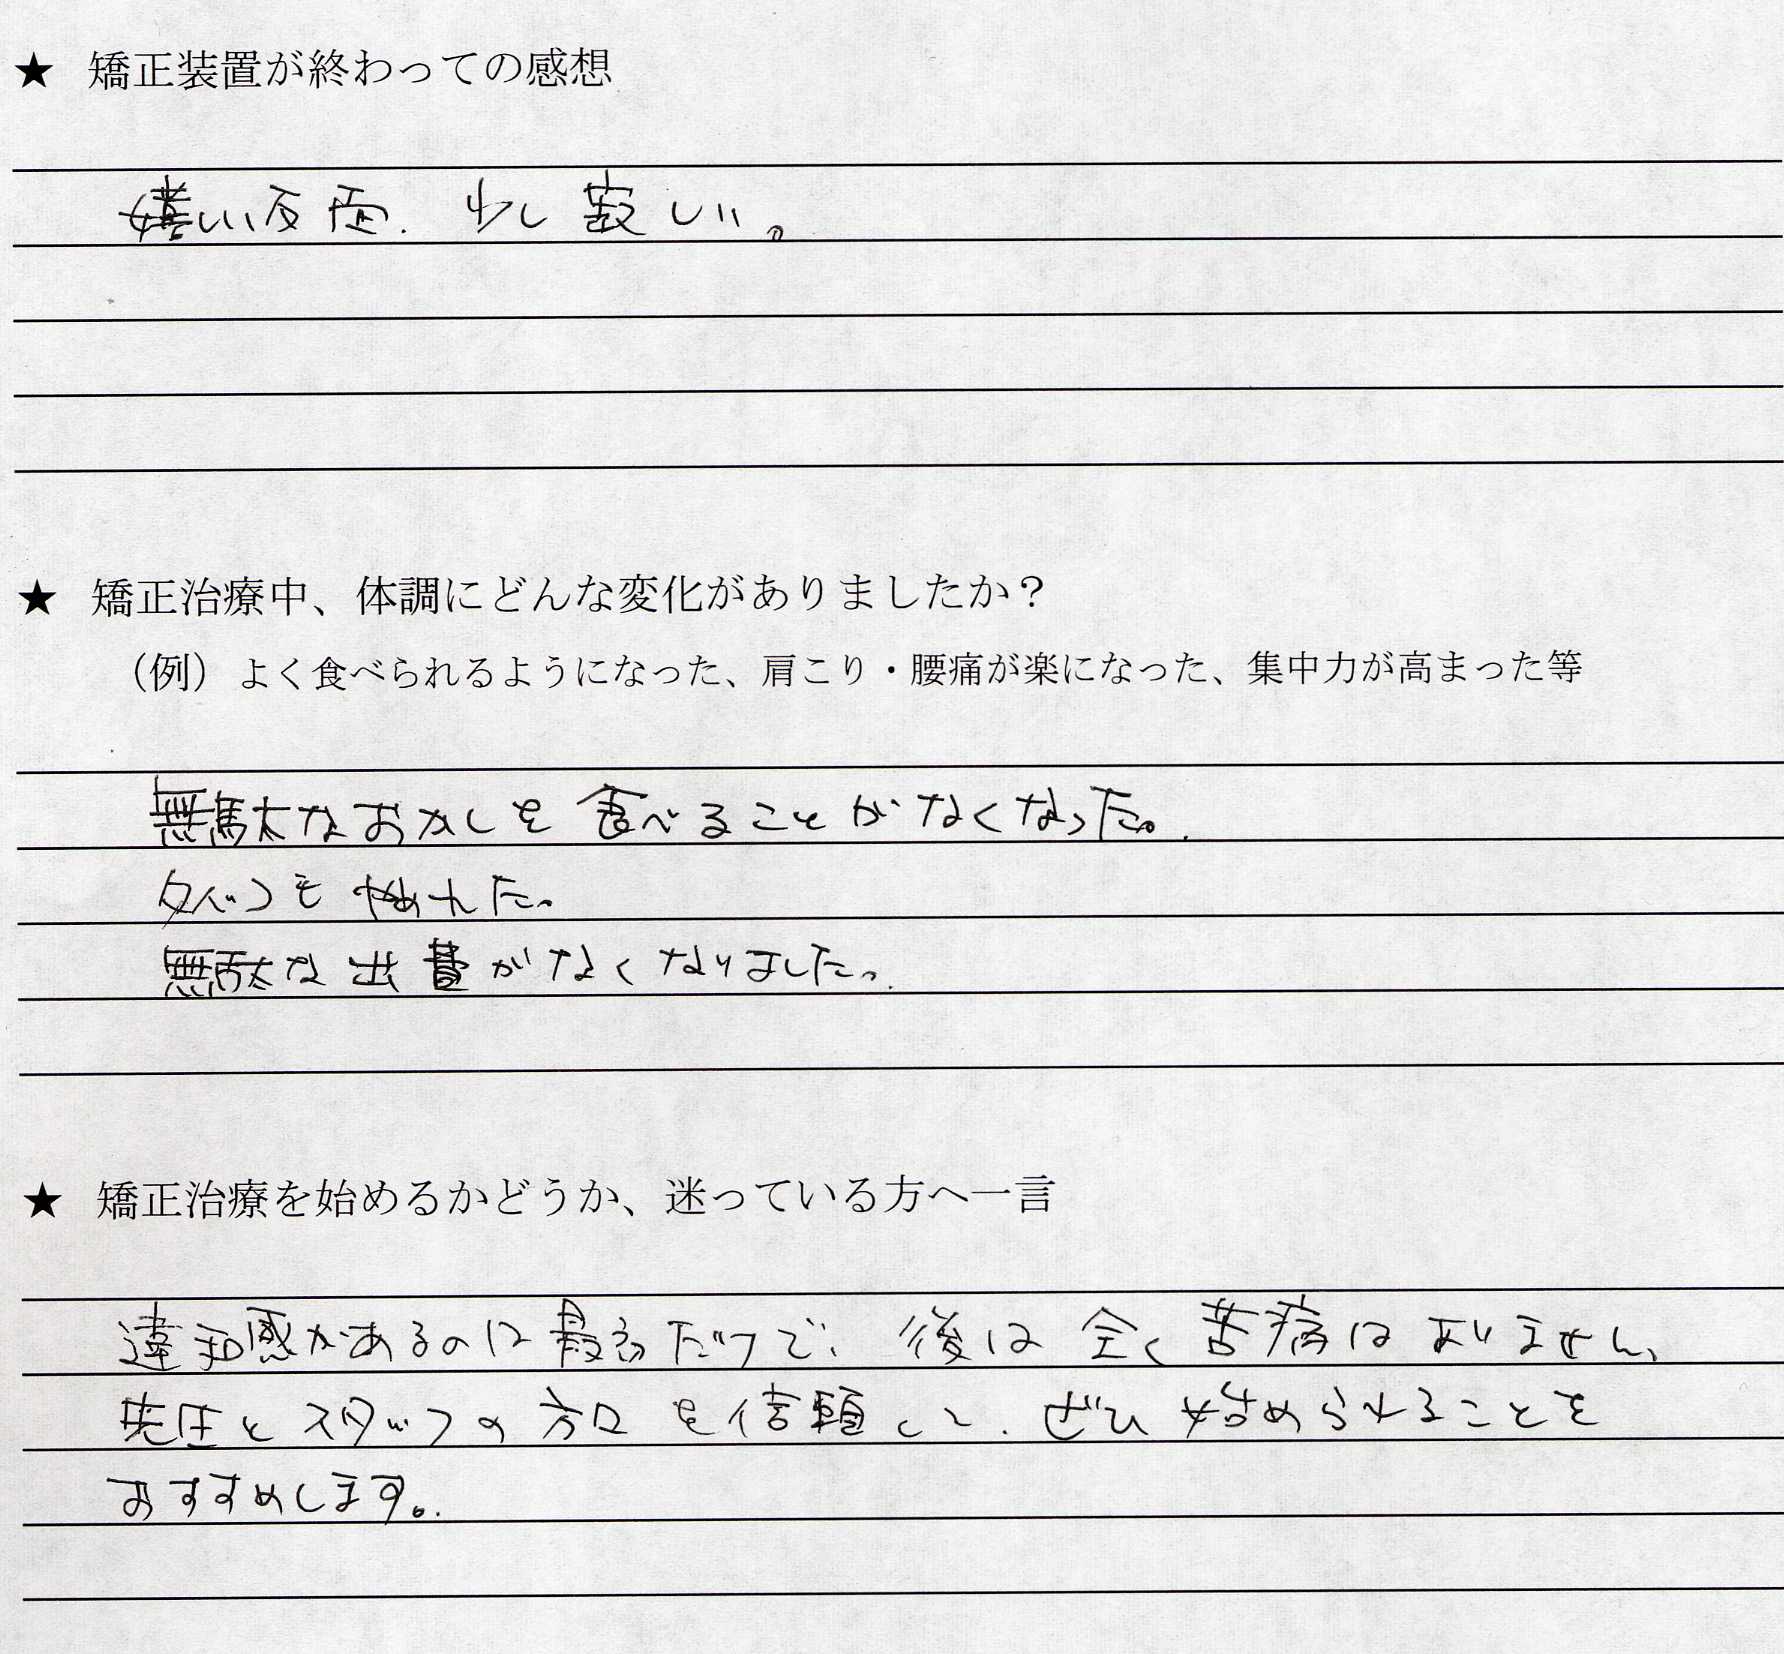 ★ 矯正装置が終わっての感想
嬉しい反面、少し寂しい。
★ 矯正治療中、体調にどんな変化がありましたか？
（例）よく食べられるようになった、肩こり・腰痛が楽になった、集中力が高まった等
無駄なおかしを食べることがなくなった。
タバコも やめれた。
無駄な出費がなくなりました。
★ 矯正治療を始めるかどうか、迷っている方へ一言
違和感があるのは最初だけで、後は全く苦痛はありません、
先生とスタッフの方々を信頼して、ぜひ始められることを
おすすめします。